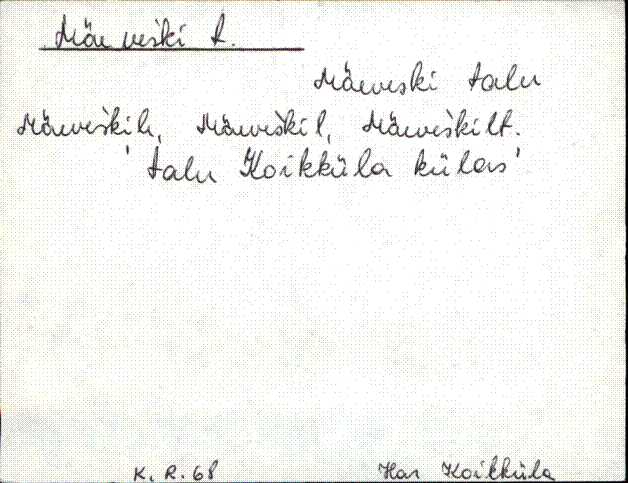 Mäeveski t.
Mäeveski talu
Mäeveskile, Mäeveskil, Mäeveskilt.
'talu Koikküla külas'
K. R. 68 Har Koikküla